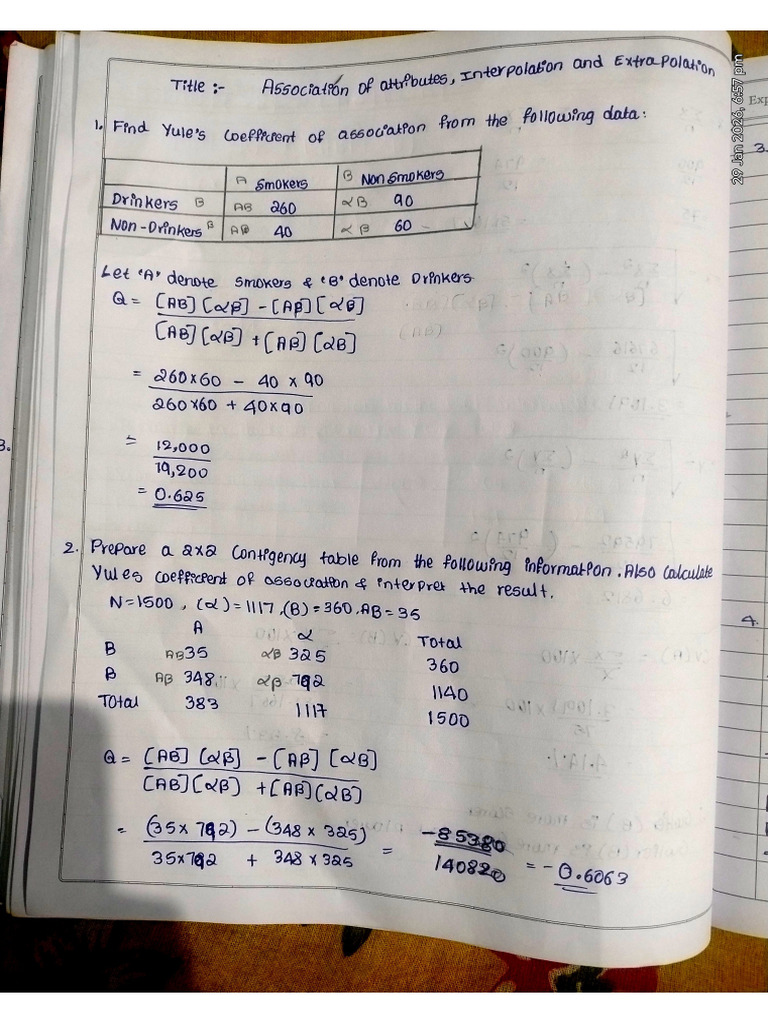 Title :- Association of attributes, Interpolation and Extrapolation
1. Find Yule's coefficient of association from the following data:
A Smokers B Non Smokers
Drinkers B AB 260 αB 90
Non-Drinkers β Aβ 40 αβ 60
Let 'A' denote smokers & 'B' denote Drinkers
Q = [AB] [αβ] - [Aβ] [αB]
[AB] [αβ] + [Aβ] [αB]
= 260x60 - 40 x 90
260x60 + 40x90
= 12,000
19,200
= 0.625
2. Prepare a 2x2 Contigency table from the following information. Also calculate
Yules coefficient of association & interpret the result.
N=1500, (α)=1117, (B)=360, AB=35
A α Total
B AB 35 αB 325 360
β Aβ 348 αβ 792 1140
Total 383 1117 1500
Q = [AB] [αβ] - [Aβ] [αB]
[AB] [αβ] + [Aβ] [αB]
= (35 x 792) - (348 x 325) = -85380 = -0.6063
35x792 + 348 x 325 140820
29 Jan 2026, 6:57 pm
Exp
3.
4.